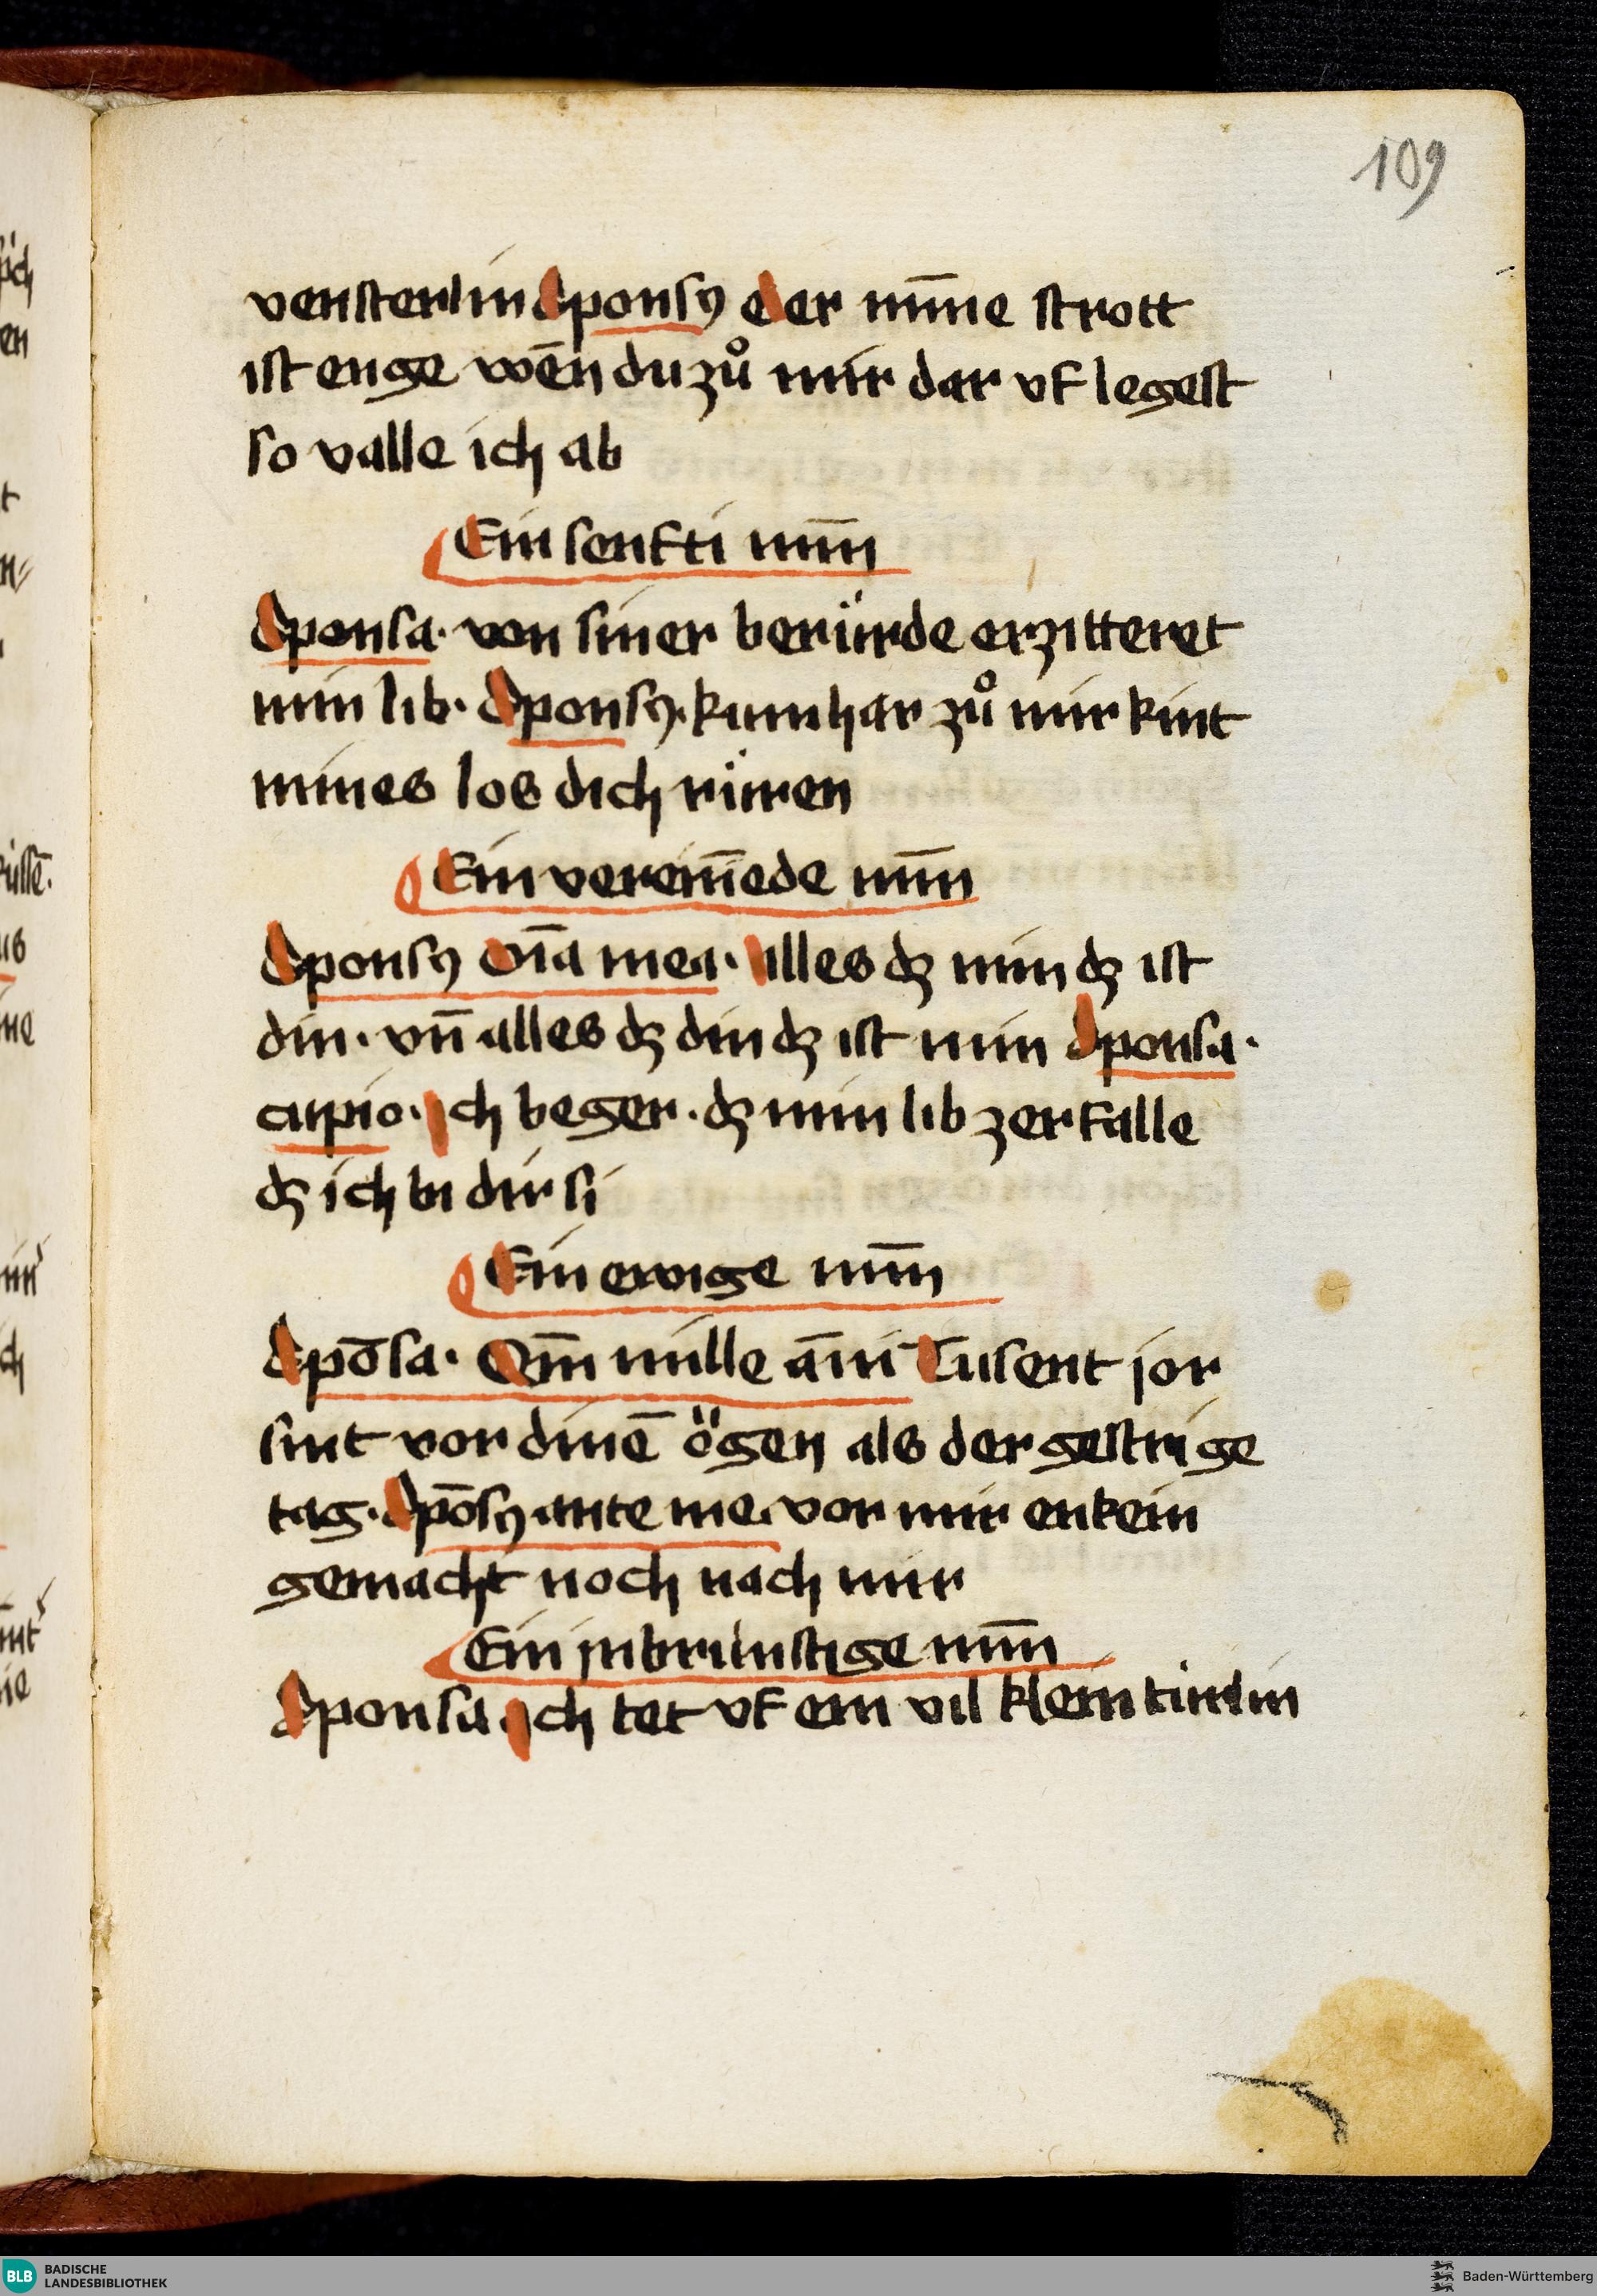 109
vensterlin Sponsꝰ der mı̄ne strott
ist enge wēn du zů mir dar vf legest
so valle ich ab
Ein senfti mı̄n
Sponsa. von siner berürde erzitteret
min lib. Sponsꝰ. kum har zů mir kint
mines los dich rüren
Ein vereın̄ede mı̄n
Sponsꝰ Oı̄a mea. Alles dz min dz ist
din. vn̄ alles dz din dz ist min Sponsa.
cupio. Ich beger. dz min lib zerfalle
dz ich bi dir si
Ein ewige mı̄n
Spōsa. Qm̄ mille āni Tusent jor
sint vor dinē ögen als der gestrige
tag. Spōsꝰ ante me. vor mir enkein
gemacht noch nach mir
Ein jnbrünstige mı̄n
Sponsa Ich tet vf ein vil klein türlin
BLB BADISCHE
LANDESBIBLIOTHEK
Baden-Württemberg